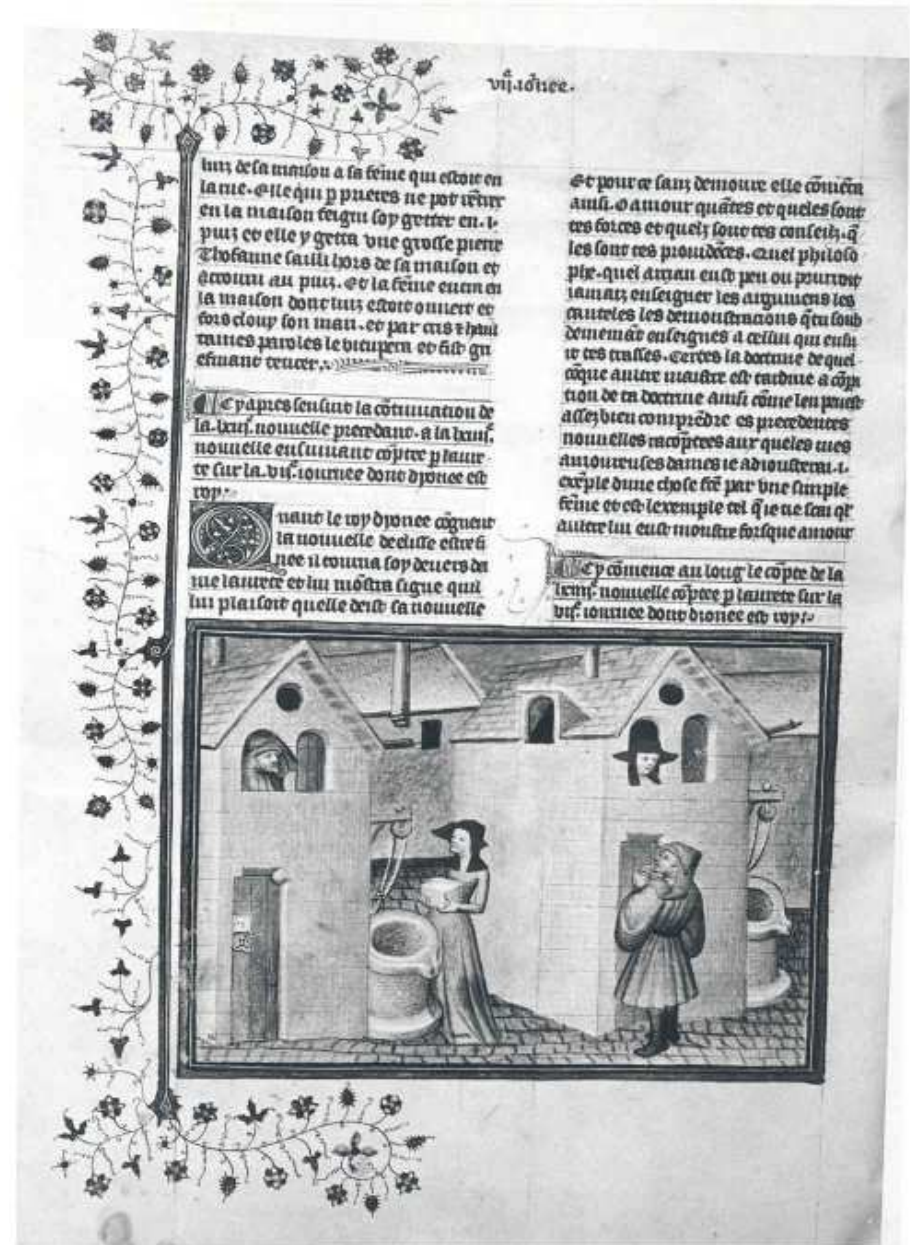 vij. iõnee.
huiz de sa maison a sa fẽme qui estoit en
la rue. Elle qui p prieres ne pot rẽtrer
en la maison feigni soy getter en .i.
puiz et elle y getta vne grosse pierre
Thofanne sailli hors de sa maison et
acourut au puiz. Et la fẽme entra en
la maison dont luiz estoit ouuert et
fors clouy son mari. et par cris & haul
taines paroles le vitupera et fist gri
efmant tencer.
Cy apres sensuit la cõtinuation de
la nouuelle precedant. a la
nouuelle ensuiuant cõptee p laure
te sur la .vije. iournee dont dyonee est
roy.
Quant le roy dyonee cõgneut
la nouuelle de elisse estre fi
nee il tourna soy deuers da
me laurete et lui mõstra signe quil
lui plaisoit quelle deist sa nouuelle
Et pour ce sanz demoure elle cõmẽca
ainsi. O amour quãtes et queles sont
tes forces et quelz sont tes conseilz. q̃
les sont tes prouidẽces. Quel philoso
phe. quel eust peu ou pourroit
iamaiz enseigner les argumens les
cauteles les demonstracions q̃ tu soub
demement enseignes a cellui qui ensu
it tes trasses. Certes la doctrine de quel
cõque autre maistre est tardiue a cõpa
tion de ta doctrine ainsi cõme len peust
assez bien comprẽdre es precedentes
nouuelles racõptees aux queles mes
amoureuses dames ie adiousterai .i.
exẽple dune chose fte par vne simple
fẽme et est lexemple tel q̃ ie ne scai q̃l
autre lui eust monstre forsque amour
Cy cõmence au long le cõpte de la
nouuelle cõptee p laurete sur la
vije. iournee dont dionee est roy.